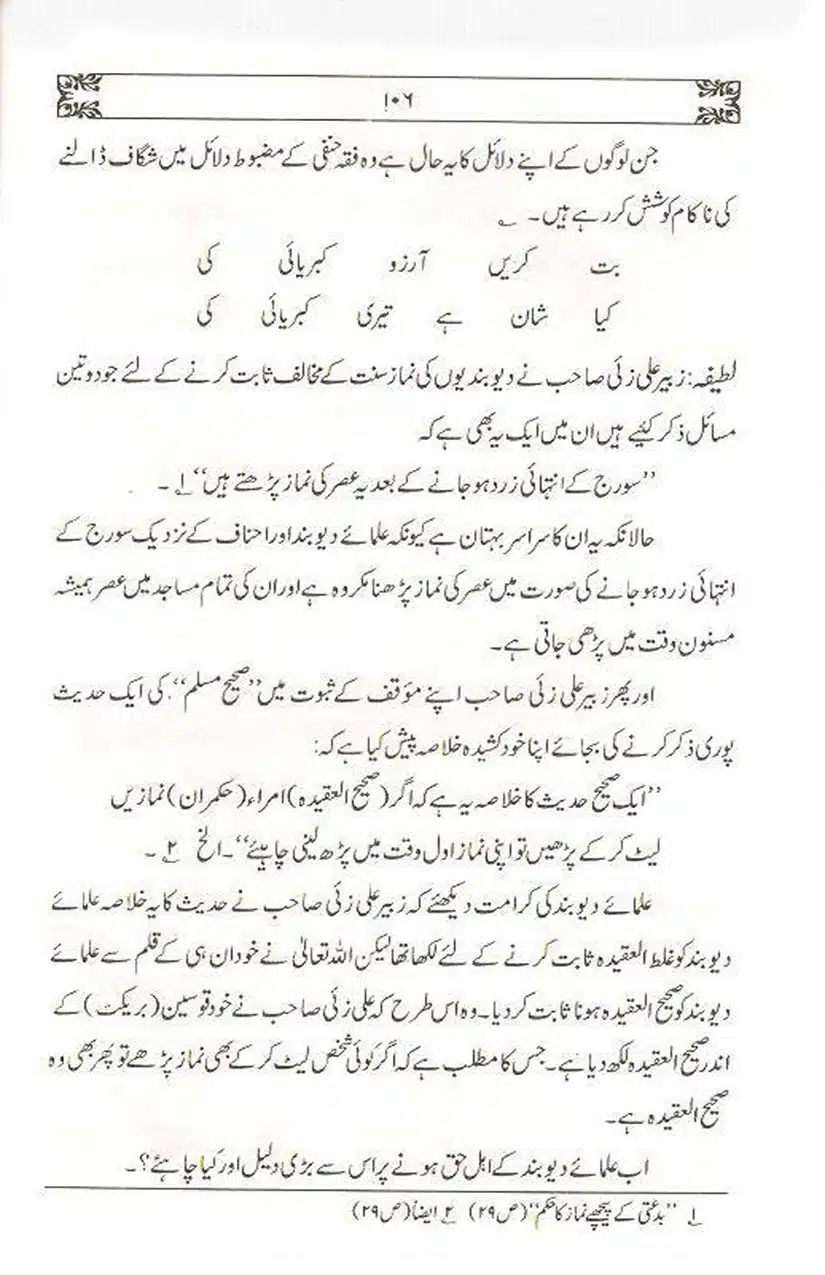 ۱۰۶
جن لوگوں کے اپنے دلائل کا یہ حال ہے وہ فقہ حنفی کے مضبوط دلائل میں شگاف ڈالنے
کی ناکام کوشش کر رہے ہیں۔ ؎
بت کریں آرزو کبریائی کی
کیا شان ہے تیری کبریائی کی
لطیفہ: زبیر علی زئی صاحب نے دیوبندیوں کی نماز سنت کے مخالف ثابت کرنے کے لئے جو دو تین
مسائل ذکر کئیے ہیں ان میں ایک یہ بھی ہے کہ
”سورج کے انتہائی زرد ہو جانے کے بعد یہ عصر کی نماز پڑھتے ہیں“ ۱؎ ۔
حالانکہ یہ ان کا سراسر بہتان ہے کیونکہ علمائے دیوبند اور احناف کے نزدیک سورج کے
انتہائی زرد ہو جانے کی صورت میں عصر کی نماز پڑھنا مکروہ ہے اور ان کی تمام مساجد میں عصر ہمیشہ
مسنون وقت میں پڑھی جاتی ہے۔
اور پھر زبیر علی زئی صاحب اپنے مؤقف کے ثبوت میں ”صحیح مسلم“ کی ایک حدیث
پوری ذکر کرنے کی بجائے اپنا خود کشیدہ خلاصہ پیش کیا ہے کہ:
”ایک صحیح حدیث کا خلاصہ یہ ہے کہ اگر (صحیح العقیدہ) امراء (حکمران) نمازیں
لیٹ کر کے پڑھیں تو اپنی نماز اول وقت میں پڑھ لینی چاہیئے“۔ الخ ۲؎ ۔
علمائے دیوبند کی کرامت دیکھئے کہ زبیر علی زئی صاحب نے حدیث کا یہ خلاصہ علمائے
دیوبند کو غلط العقیدہ ثابت کرنے کے لئے لکھا تھا لیکن اللہ تعالیٰ نے خود ان ہی کے قلم سے علمائے
دیوبند کو صحیح العقیدہ ہونا ثابت کر دیا۔ وہ اس طرح کہ علی زئی صاحب نے خود قوسین (بریکٹ) کے
اندر صحیح العقیدہ لکھ دیا ہے۔ جس کا مطلب ہے کہ اگر کوئی شخص لیٹ کر کے بھی نماز پڑھے تو پھر بھی وہ
صحیح العقیدہ ہے۔
اب علمائے دیوبند کے اہل حق ہونے پر اس سے بڑی دلیل اور کیا چاہئے؟۔
۱؎ ”بدعتی کے پیچھے نماز کا حکم“ (ص۲۹) ۲؎ ایضاً (ص۲۹)